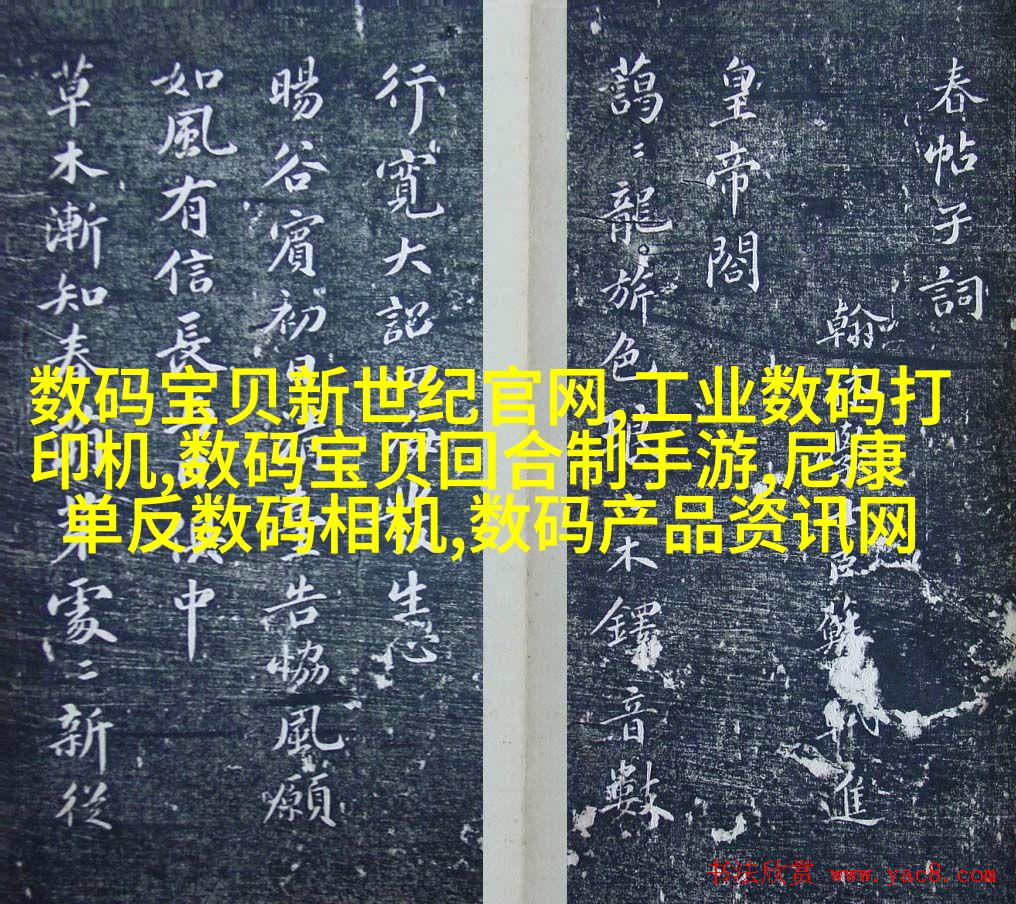 春帖子詞
翰 臣蘇軾進
皇帝閤
藹〻龍旂色 木鐸音數
行寬大詔四海 生心
暘谷賓初日 告協風願
如風有信長 中
草木漸知春 芽處〻新從
数码宝贝新世纪官网,工业数码打
印机,数码宝贝回合制手游,尼康
单反数码相机,数码产品资讯网
书法欣赏 www.yac8.com